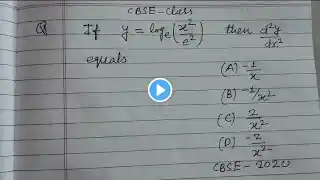 CBSE-Class
Q If y = logₑ(x²/e²) then d²y/dx²
equals
(A) -1/x
(B) -1/x²
(C) 2/x²
(D) -2/x²
CBSE-2020